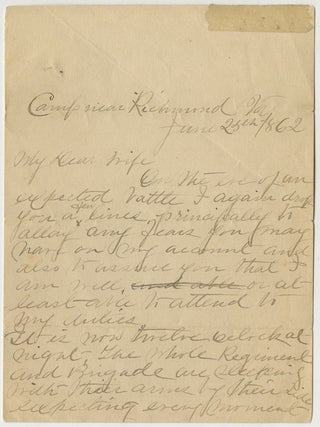 Camp near Richmond Va
June 25th 1862
My Dear Wife
On the eve of an
expected battle I again drop
you a few lines, principally to
allay any fears you may
have on my account and
also to assure you that I
am well, and able or at
least able to attend to
my duties.
It is now twelve oclock at
night. The whole Regiment
and Brigade are sleeping
with their arms by their side
expecting every moment